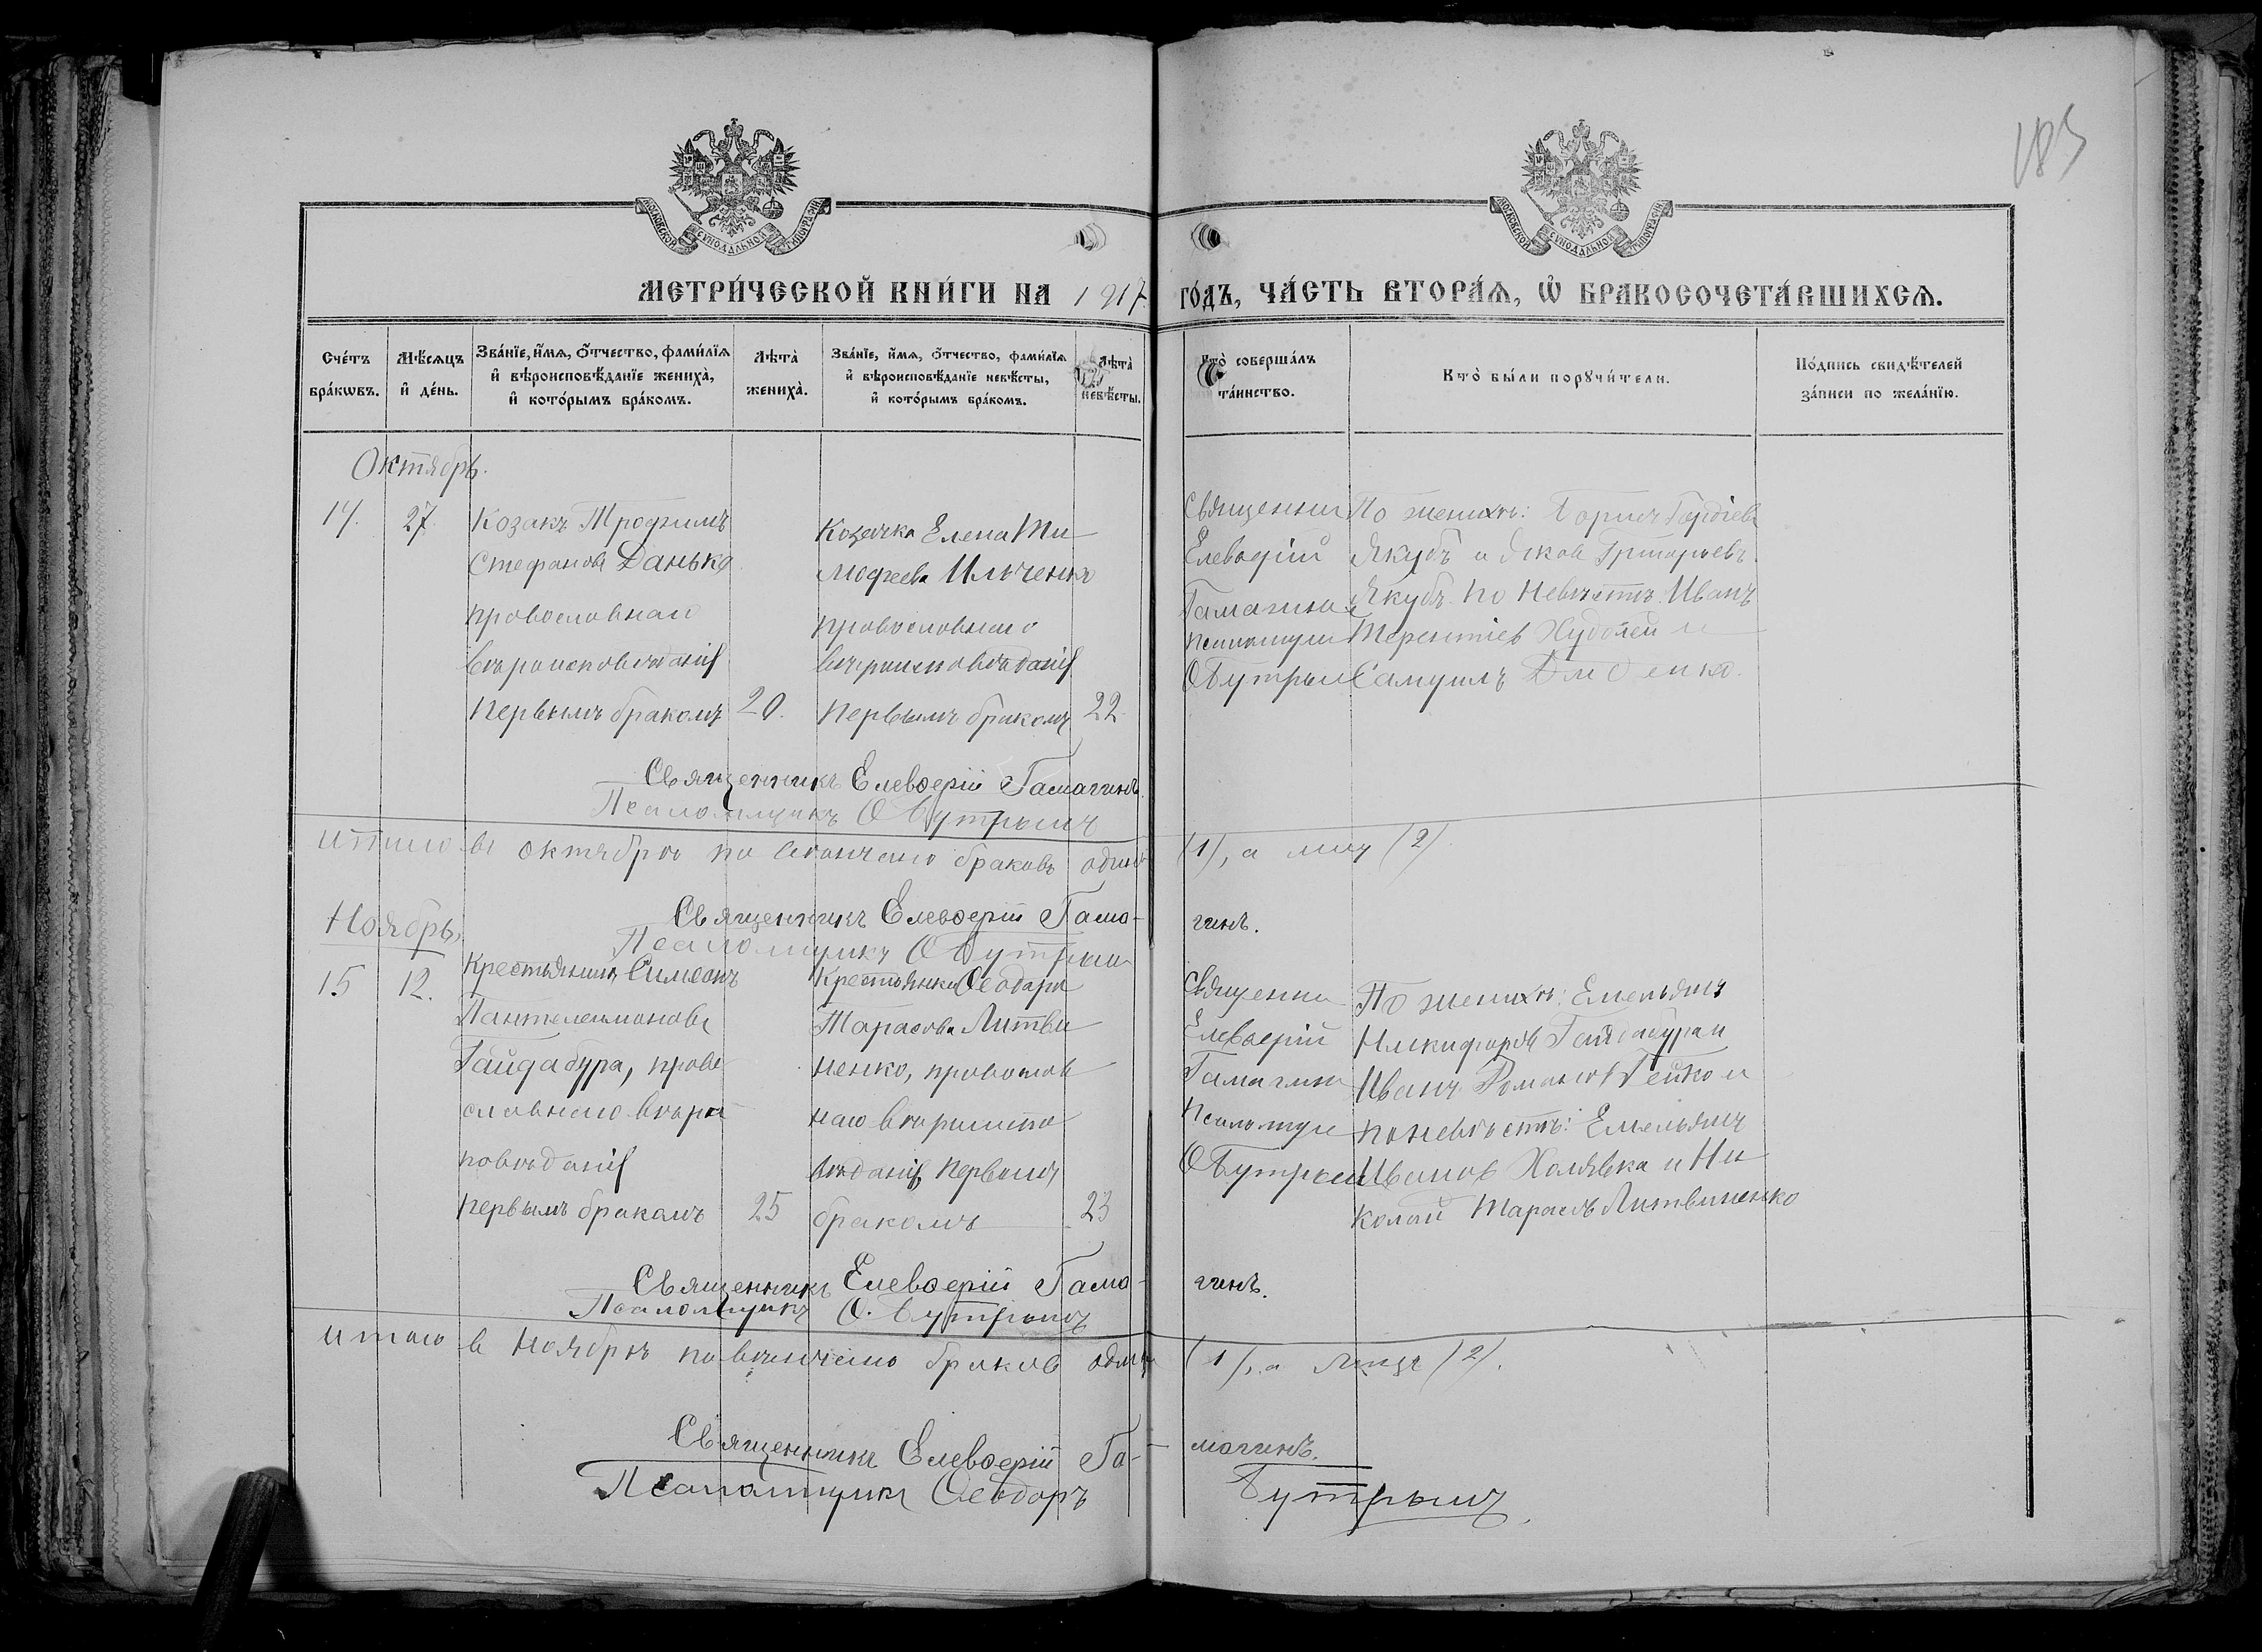 185
МОСКОВСКОЙ СѴНОДАЛЬНОЙ ТИПОГРАФІИ
МОСКОВСКОЙ СѴНОДАЛЬНОЙ ТИПОГРАФІИ
МЕТРИ́ЧЕСКОЙ КНИ́ГИ НА 1917 ГО́ДЪ, ЧА́СТЬ ВТОРА́Ѧ, Ѽ БРАКОСОЧЕТА́ВШИХСѦ.
Сче́тъ бра́кѡвъ.
Мѣ́сѧцъ и҆ де́нь.
Зва́нїе, и҆́мѧ, ѻ҆́тчество, фами́лїѧ и҆ вѣроисповѣ́данїе жениха̀, и҆ кото́рымъ бра́комъ.
Лѣ́та̀ жениха̀.
Зва́нїе, и҆́мѧ, ѻ҆́тчество, фами́лїѧ и҆ вѣроисповѣ́данїе невѣ́сты, и҆ кото́рымъ бра́комъ.
Лѣ́та̀ невѣ́сты.
Кто̀ соверша́лъ та́инство.
Кто̀ бы́ли порꙋчи́тели.
По́дпись свидѣ́телей за́писи по жела́нїю.
Октябрь.
14. 27.
Козакъ Трофимъ
Стефановъ Данько
православнаго
вѣроисповѣданія
первымъ бракомъ 20.
Козачка Елена Ти-
мофеева Ильченко
православнаго
вѣроисповѣданія
первымъ бракомъ 22
Священни
Елевѳерій
Гамагинъ
псаломщи
Ѳ Бутрым
По женихѣ: Борисъ Гордіевъ
Якубъ и Яковъ Григорьевъ
Якубъ. По невѣстѣ: Иванъ
Терентіев Худолей и
Самуилъ
Священникъ Елевѳерій Гамагинъ.
Псаломщикъ Ѳ Бутрымъ
Итого въ октябрѣ повѣнчано браковъ одинъ (1), а лицъ (2)
Священникъ Елевѳерій Гама-гинъ.
Псаломщикъ Ѳ Бутрым
Ноябрь,
15 12.
Крестьянинъ Симеонъ
Пантелеимоновъ
Гайдабура, право
славнаго вѣроис
повѣданія
первымъ бракомъ 25
Крестьянка Ѳеодора
Тарасова Литви
ненко, православ
наго вѣроиспо
вѣданія первымъ
бракомъ 23
Священни
Елевѳерій
Гамагин
псаломщи
Ѳ Бутрым
По женихѣ: Емельянъ
Никифоровъ Гайдабура и
Иванъ Романов Гейко и
по невѣстѣ: Емельянъ
Иванов Холявка и Ни
колай Тарасъ Литвиненко
Священникъ Елевѳерій Гама-гинъ.
Псаломщикъ Ѳ. Бутрымъ
Итого в Ноябрѣ повѣнчано браков одинъ (1), а лицъ (2).
Священникъ Елевѳерій Га-магинъ.
Псаломщикъ Ѳеодоръ Бутрымъ.